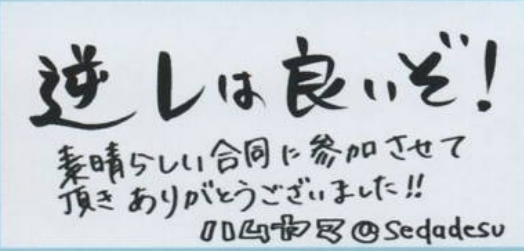 逆しは良いぞ!
素晴らしい合同に参加させて
頂きありがとうございました!!
ハムヤマ@Sedadesu